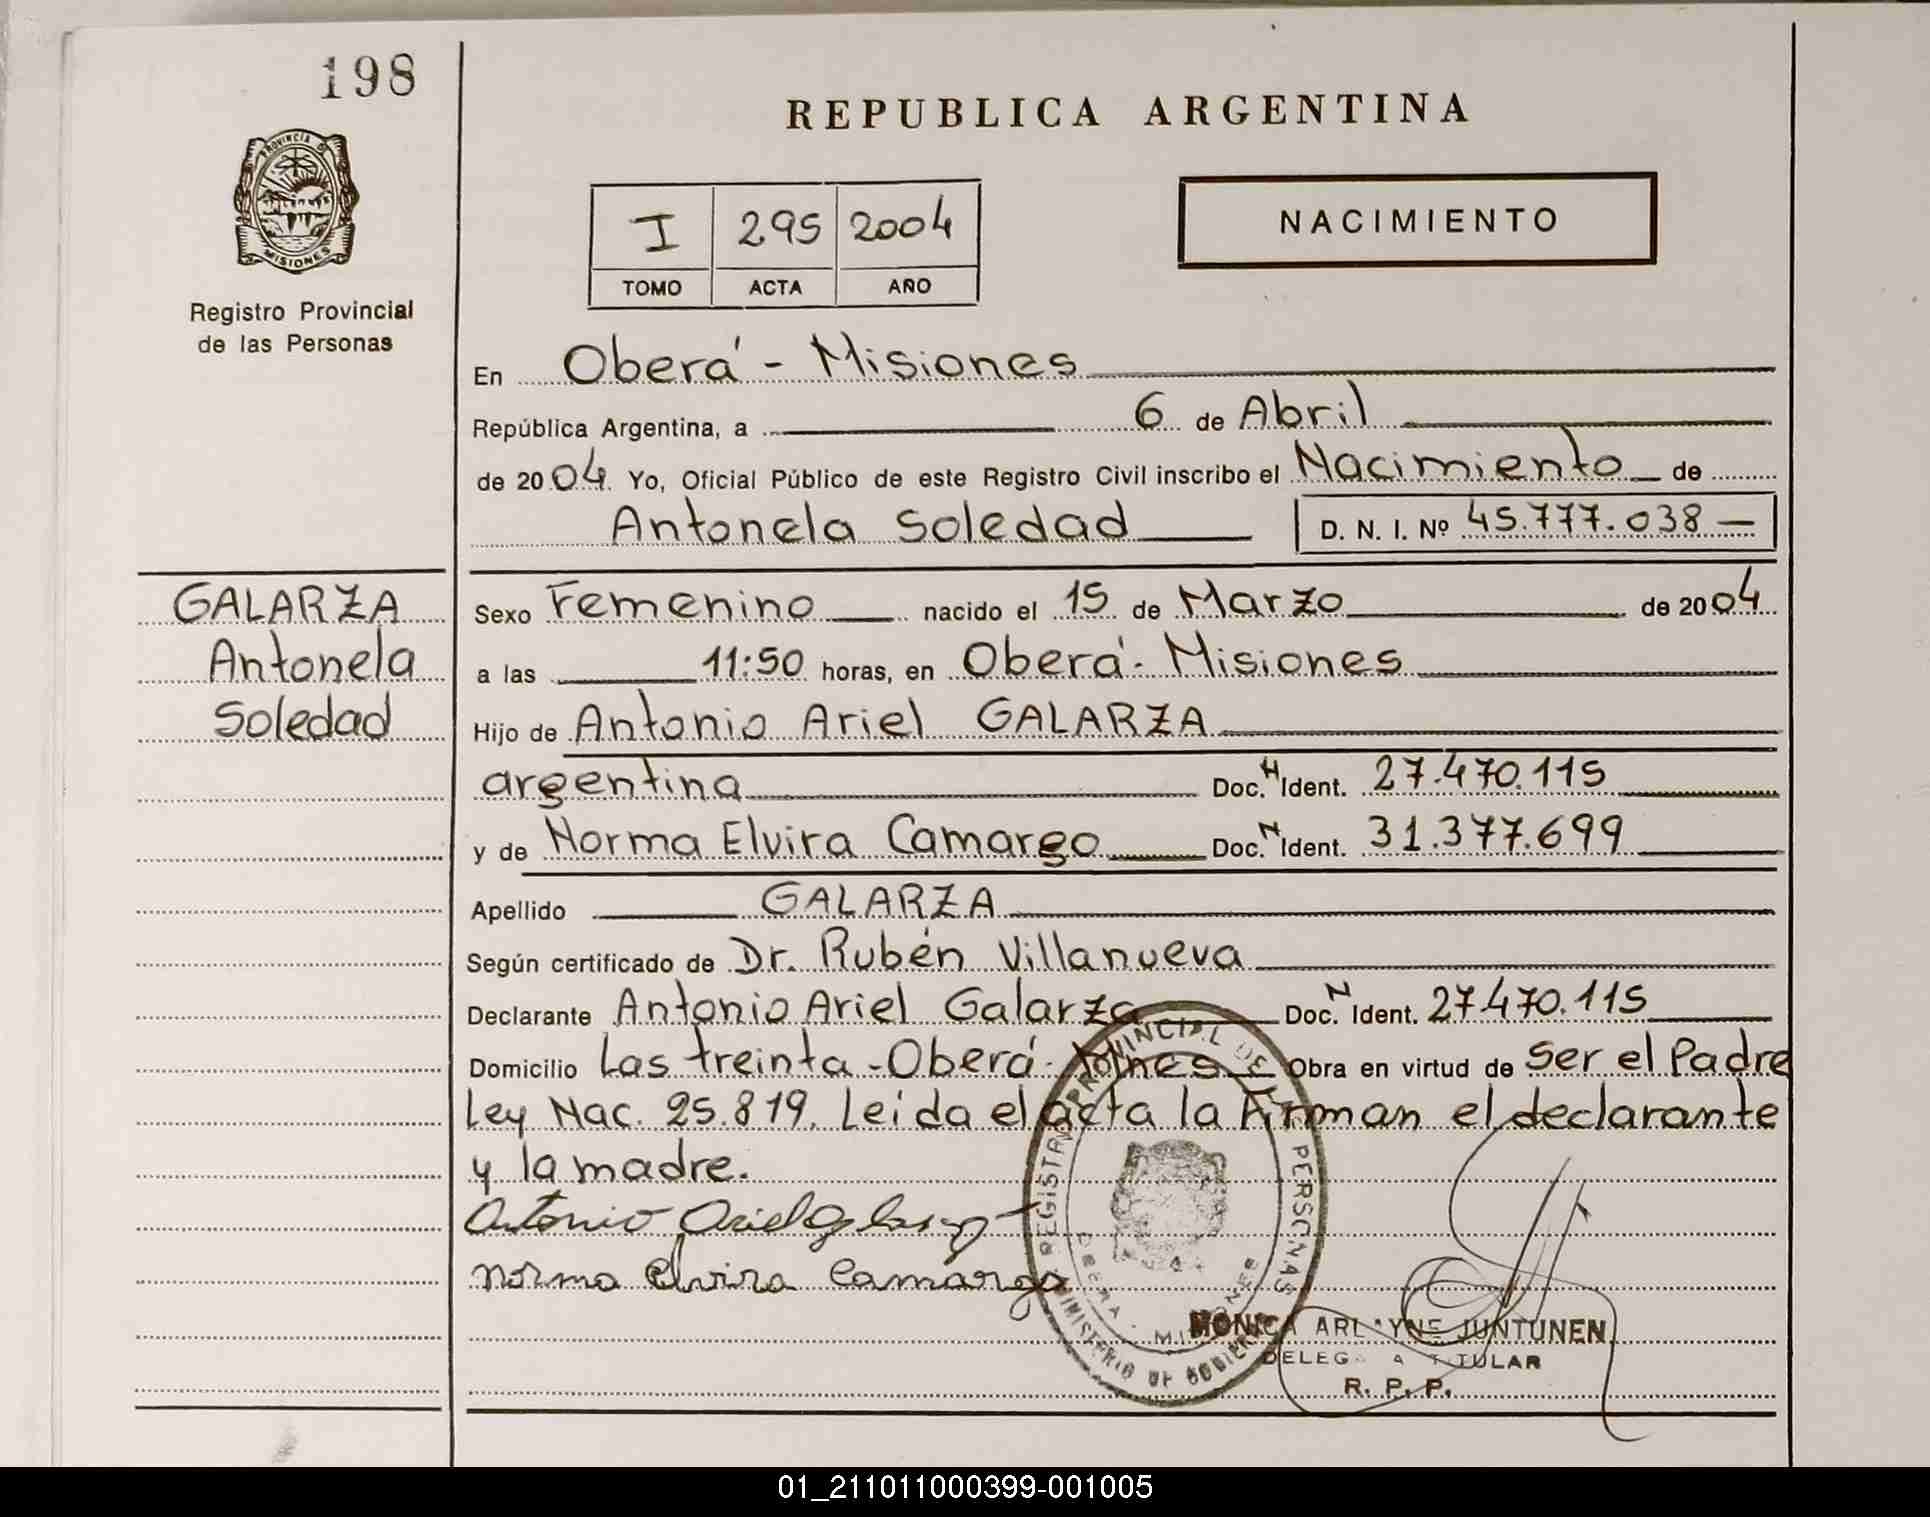 198
PROVINCIA D
MISIONES
Registro Provincial
de las Personas
GALARZA
Antonela
Soledad
REPUBLICA ARGENTINA
I 295 2004
TOMO ACTA AÑO
NACIMIENTO
En Oberá - Misiones
República Argentina, a 6 de Abril
de 2004 Yo, Oficial Público de este Registro Civil inscribo el Nacimiento de
Antonela Soledad D. N. I. Nº 45.777.038
Sexo Femenino nacido el 15 de Marzo de 2004
a las 11:50 horas, en Oberá - Misiones
Hijo de Antonio Ariel GALARZA
argentina Doc. N Ident. 27.470.115
y de Norma Elvira Camargo Doc. N Ident. 31.377.699
Apellido GALARZA
Según certificado de Dr. Rubén Villanueva
Declarante Antonio Ariel Galarza Doc. N Ident. 27.470.115
Domicilio Las treinta - Oberá - Obra en virtud de Ser el Padre
Ley Nac. 25.819. Leida el acta la Firman el declarante
y la madre.
Antonio Ariel
Norma Elvira Camargo
PROVINCIAL DE PERSONAS
MINISTERIO DE
MONICA JUNTUNEN
TITULAR
R. P. P.
01_211011000399-001005